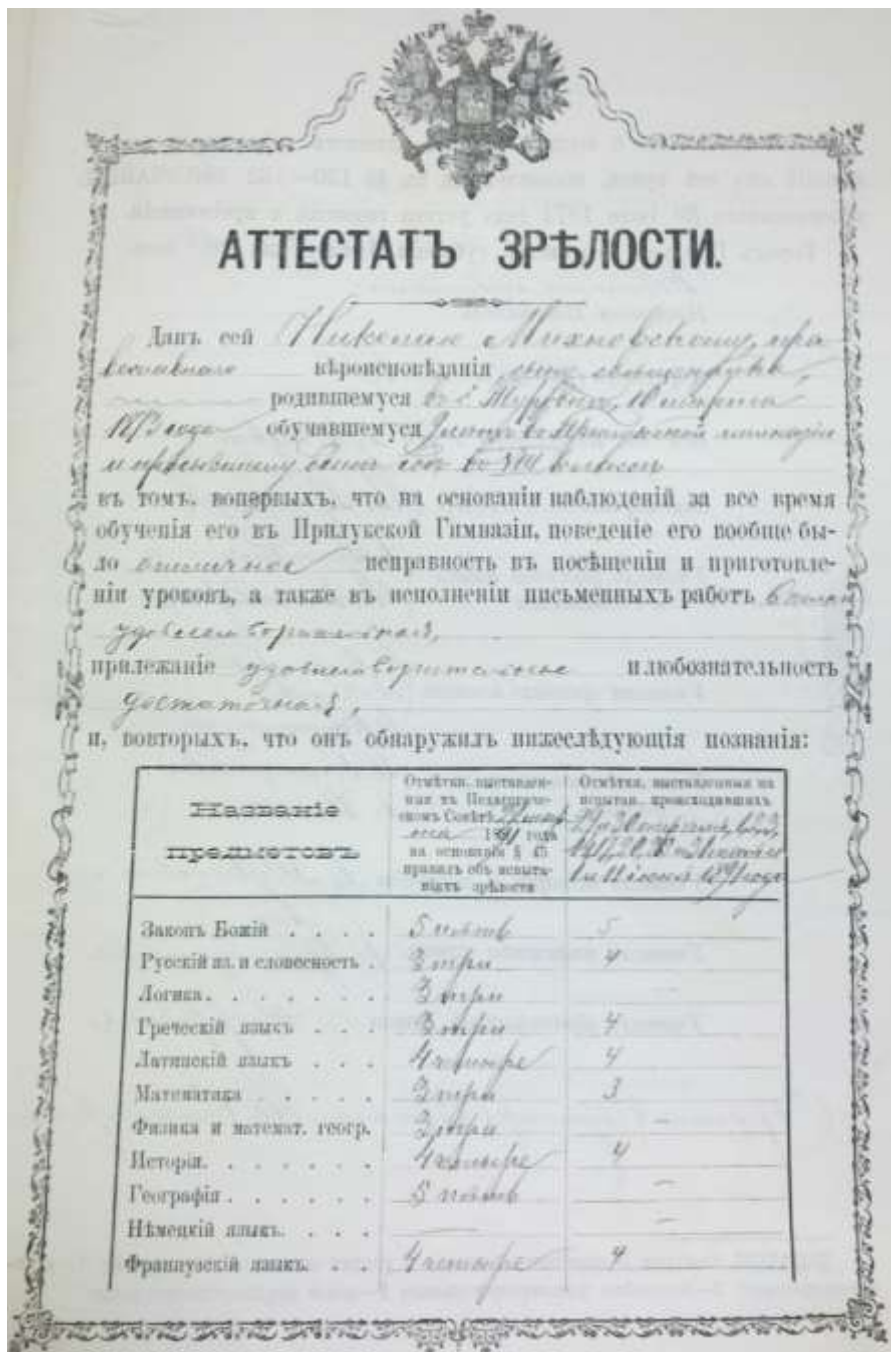 АТТЕСТАТЪ ЗРѢЛОСТИ.
Данъ сей Николаю Михновскому, пра
вославнаго вѣроисповѣданія сыну священника
родившемуся въ с. Туровкѣ,
1873 года обучавшемуся въ Прилукской гимназіи
и пробывшему одинъ годъ въ VIII классѣ
въ томъ, вопервыхъ, что на основаніи наблюденій за все время
обученія его въ Прилукской Гимназіи, поведеніе его вообще бы-
ло отличное исправность въ посѣщеніи и приготовле-
ніи уроковъ, а также въ исполненіи письменныхъ работъ
удовлетворительная,
прилежаніе удовлетворительное и любознательность
достаточная,
и, вовторыхъ, что онъ обнаружилъ нижеслѣдующія познанія:
Названіе предметовъ
Отмѣтки, выставлен-
ныя въ Педагогиче-
скомъ Совѣтѣ
1891 года
на основаніи § 45
правилъ объ испыта-
ніяхъ зрѣлости
Отмѣтки, выставленныя на
испытан. происходившихъ
29 и 30 апрѣля,
1891 года
Законъ Божій . . . . 5 пять 5
Русскій яз. и словесность . 3 три 4
Логика. . . . . . . 3 три —
Греческій языкъ . . . 3 три 4
Латинскій языкъ . . . 4 четыре 4
Математика . . . . . 3 три 3
Физика и математ. геогр. 3 три —
Исторія. . . . . . . 4 четыре 4
География . . . . . . 5 пять —
Нѣмецкій языкъ. . . . — —
Французскій языкъ. . . 4 четыре 4